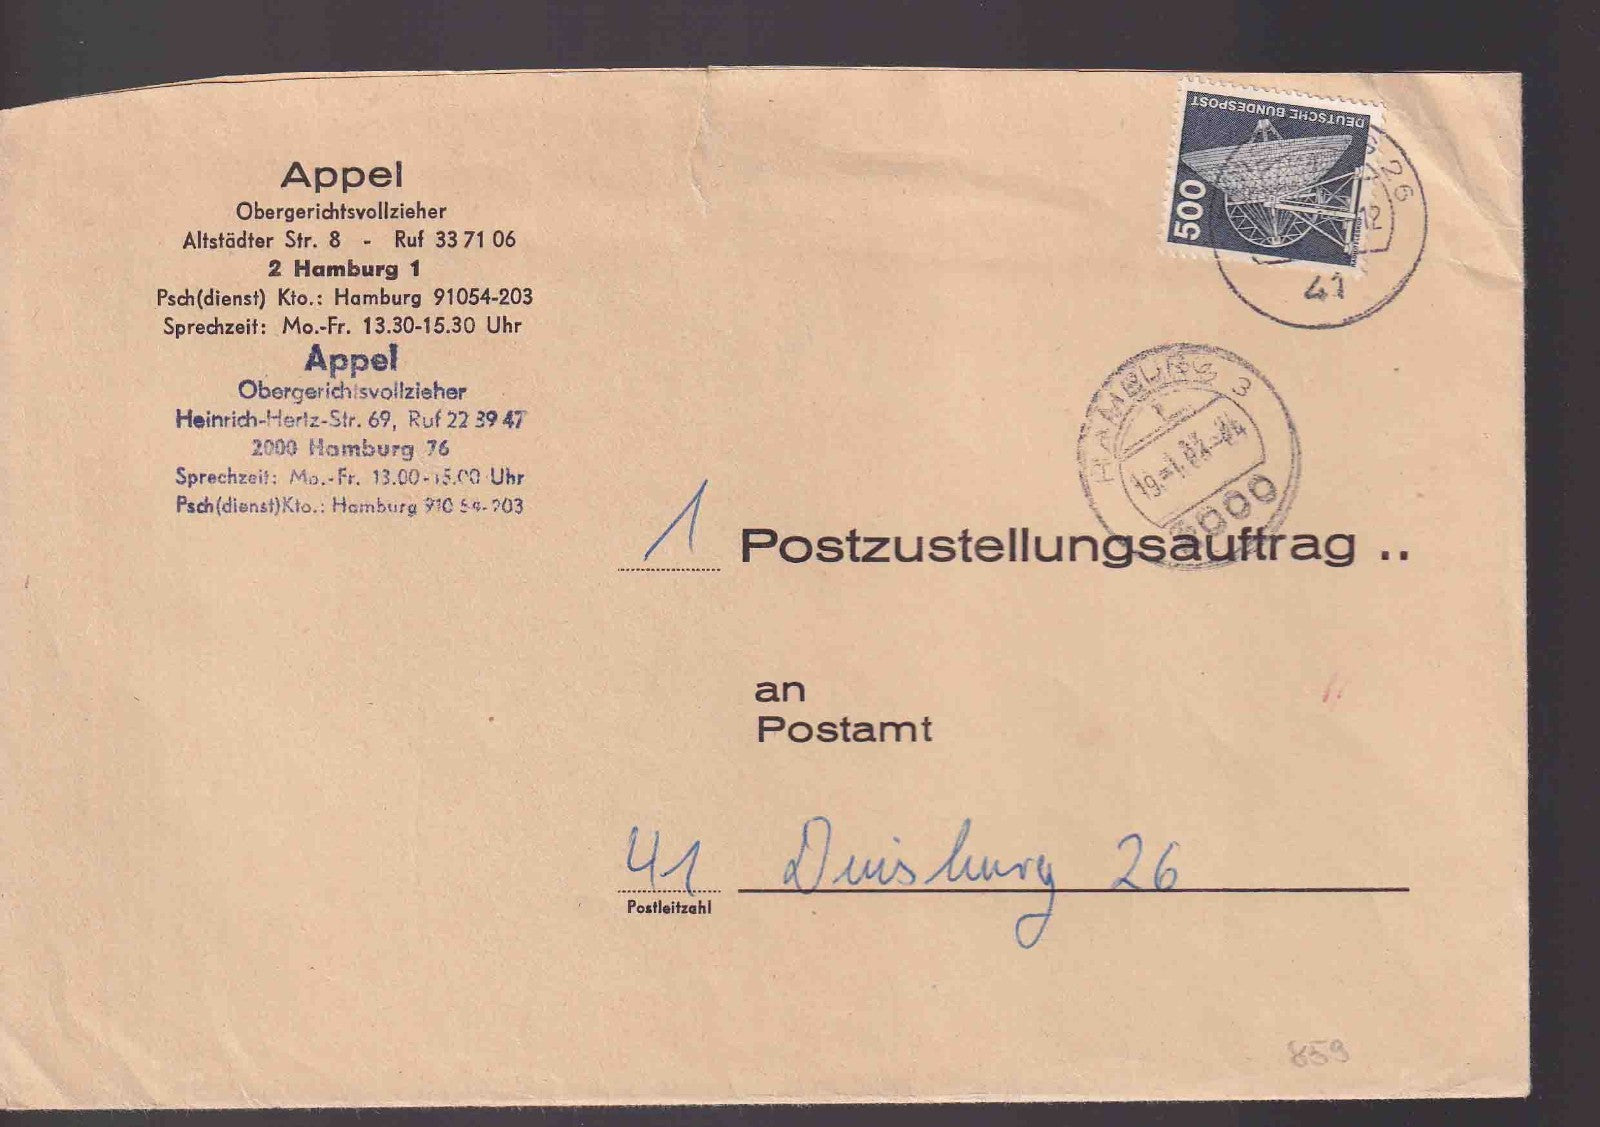 Appel
Obergerichtsvollzieher
Altstädter Str. 8 - Ruf 33 71 06
2 Hamburg 1
Psch(dienst) Kto.: Hamburg 91054-203
Sprechzeit: Mo.-Fr. 13.30-15.30 Uhr
Appel
Obergerichtsvollzieher
Heinrich-Hertz-Str. 69, Ruf 22 39 47
2000 Hamburg 76
Sprechzeit: Mo.-Fr. 13.00-15.00 Uhr
Psch(dienst)Kto.: Hamburg 910 54-203
DEUTSCHE BUNDESPOST
500
26
12
41
HAMBURG 3
2000
1 Postzustellungsauftrag ..
an
Postamt
41 Duisburg 26
Postleitzahl
859